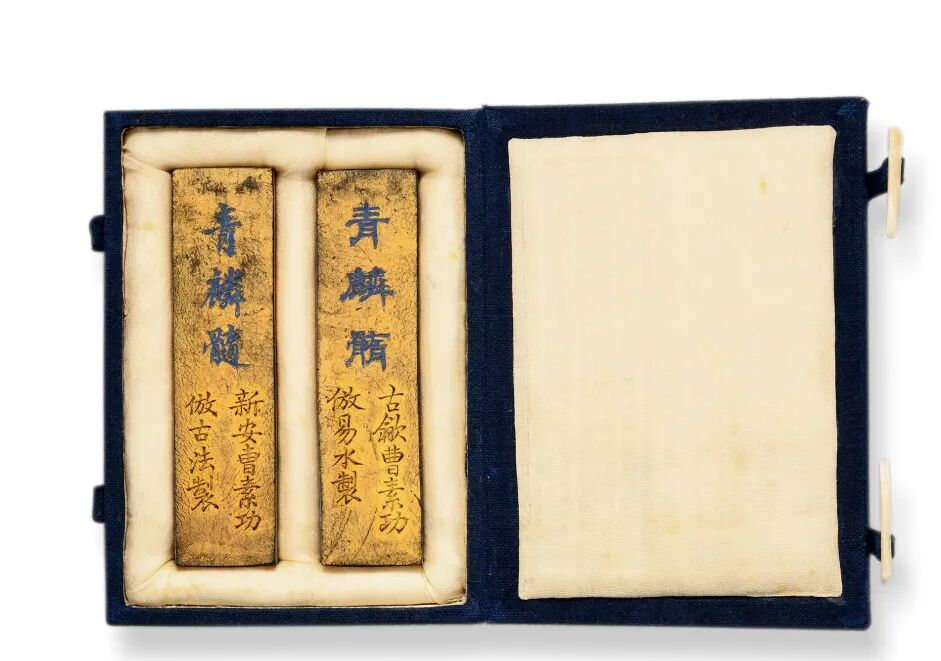 青麟髓
古歙曹素功
倣易水製
青麟髓
新安曹素功
倣古法製